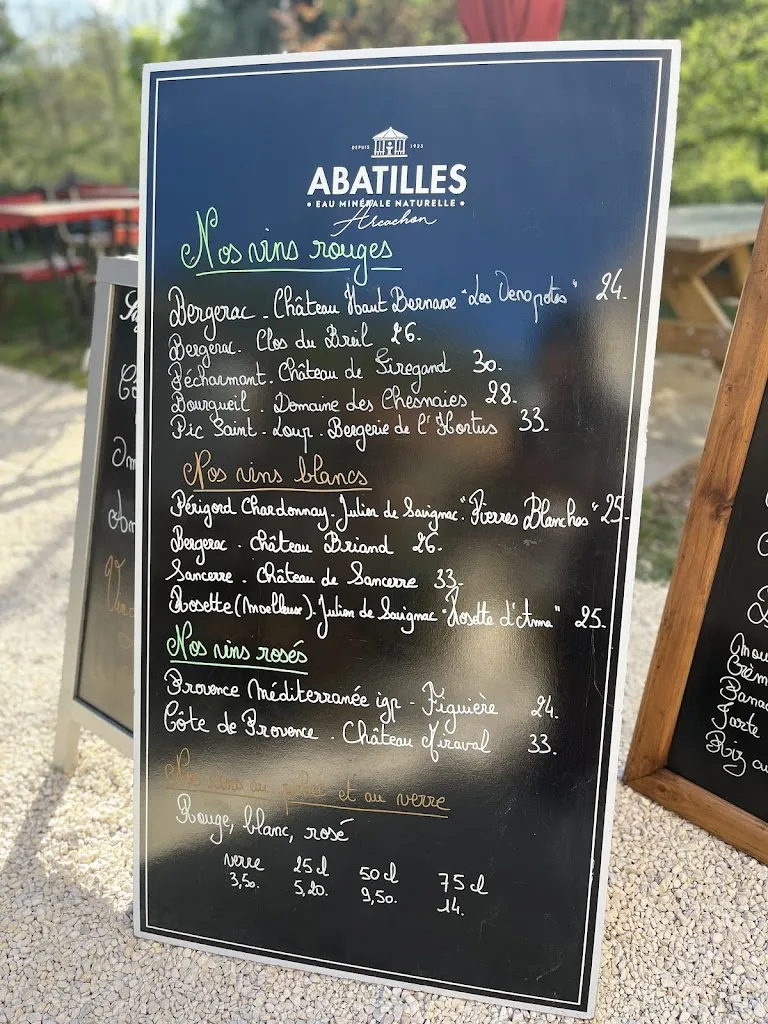 DEPUIS 1925
ABATILLES
• EAU MINÉRALE NATURELLE •
Arcachon
Nos vins rouges
Bergerac - Château Haut Bernasse "Les 24.
Bergerac. Clos du Breil 26.
Pécharmant. Château de Tiregand 30.
Bourgueil. Domaine des Chesnaies 28.
Pic Saint-Loup. Bergerie de l'Hortus 33.
Nos vins blancs
Périgord Chardonnay. Julien de Savignac. "Pierres Blanches" 25.
Bergerac. Château Briand 26.
Sancerre. Château de Sancerre 33.
Rosette (Moelleux). Julien de Savignac "Rosette d'Anna" 25.
Nos vins rosés
Provence Méditerranée igp - Figuière 24.
Côte de Provence. Château Miraval 33.
Nos vins au pichet et au verre
Rouge, blanc, rosé
verre 25cl 50cl 75cl
3,50. 5,20. 9,50. 14.
Banan
Tarte
Riz au